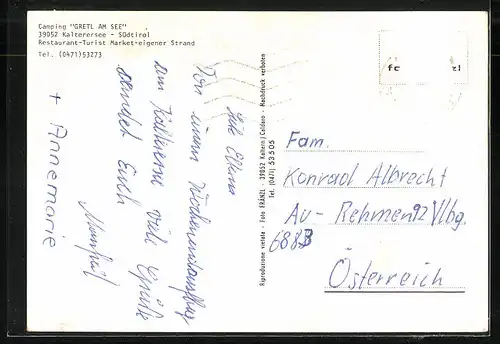 Camping "GRETL AM SEE"
39052 Kalterersee - Südtirol
Restaurant-Turist Market-eigener Strand
Tel. (0471)53273
Liebe Eltern
Von einem Wochenendausflug
am Kalterersee viele Grüße
sendet Euch
Manfred
+ Annemarie
Riproduzione vietata - Foto FRÄNZL - 39052 Kaltern/Caldaro - Nachdruck verboten
Tel. (0471) 53505
fc zl
Fam.
Konrad Albrecht
Au-Rehmen 92 Vlbg.
6883
Österreich